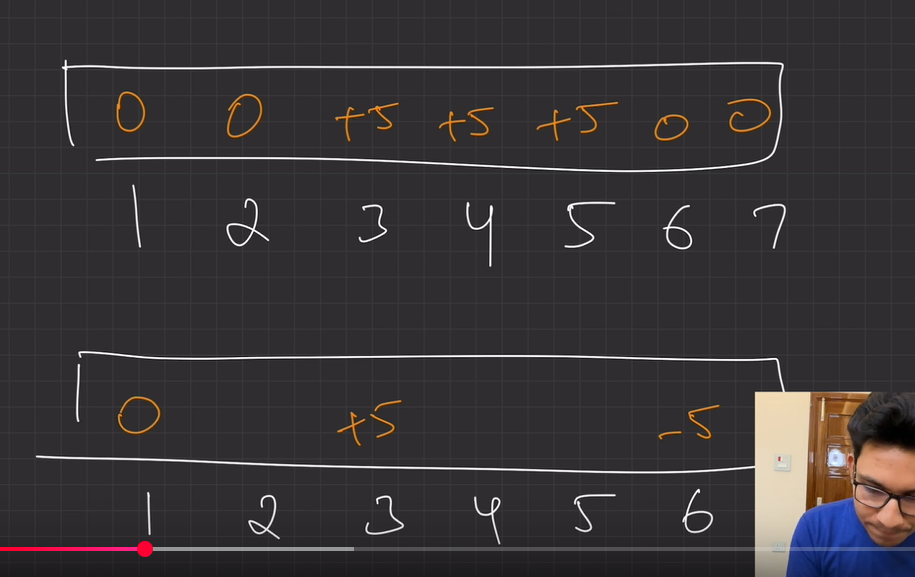 0 0 +5 +5 +5 0 0
1 2 3 4 5 6 7
0 +5 -5
1 2 3 4 5 6